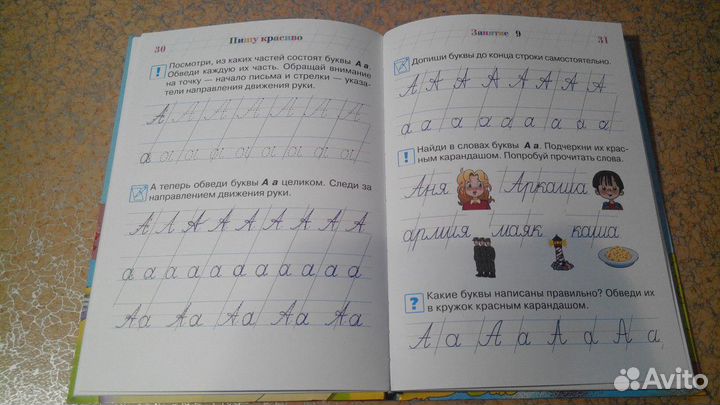 30 Пишу красиво
Посмотри, из каких частей состоят буквы А а.
Обведи каждую их часть. Обращай внимание
на точку — начало письма и стрелки — указа-
тели направления движения руки.
А А А А А А А А
а а а а а а а а
А теперь обведи буквы А а целиком. Следи за
направлением движения руки.
А А А А А А А А А
а а а а а а а а а а
Аа Аа Аа Аа Аа
Занятие 9 31
Допиши буквы до конца строки самостоятельно.
А А А А А А А А
а а а а а а а а а
Найди в словах буквы А а. Подчеркни их крас-
ным карандашом. Попробуй прочитать слова.
Аня Аркаша
армия маяк каша
Какие буквы написаны правильно? Обведи их
в кружок красным карандашом.
А а А А а А а А а
Avito